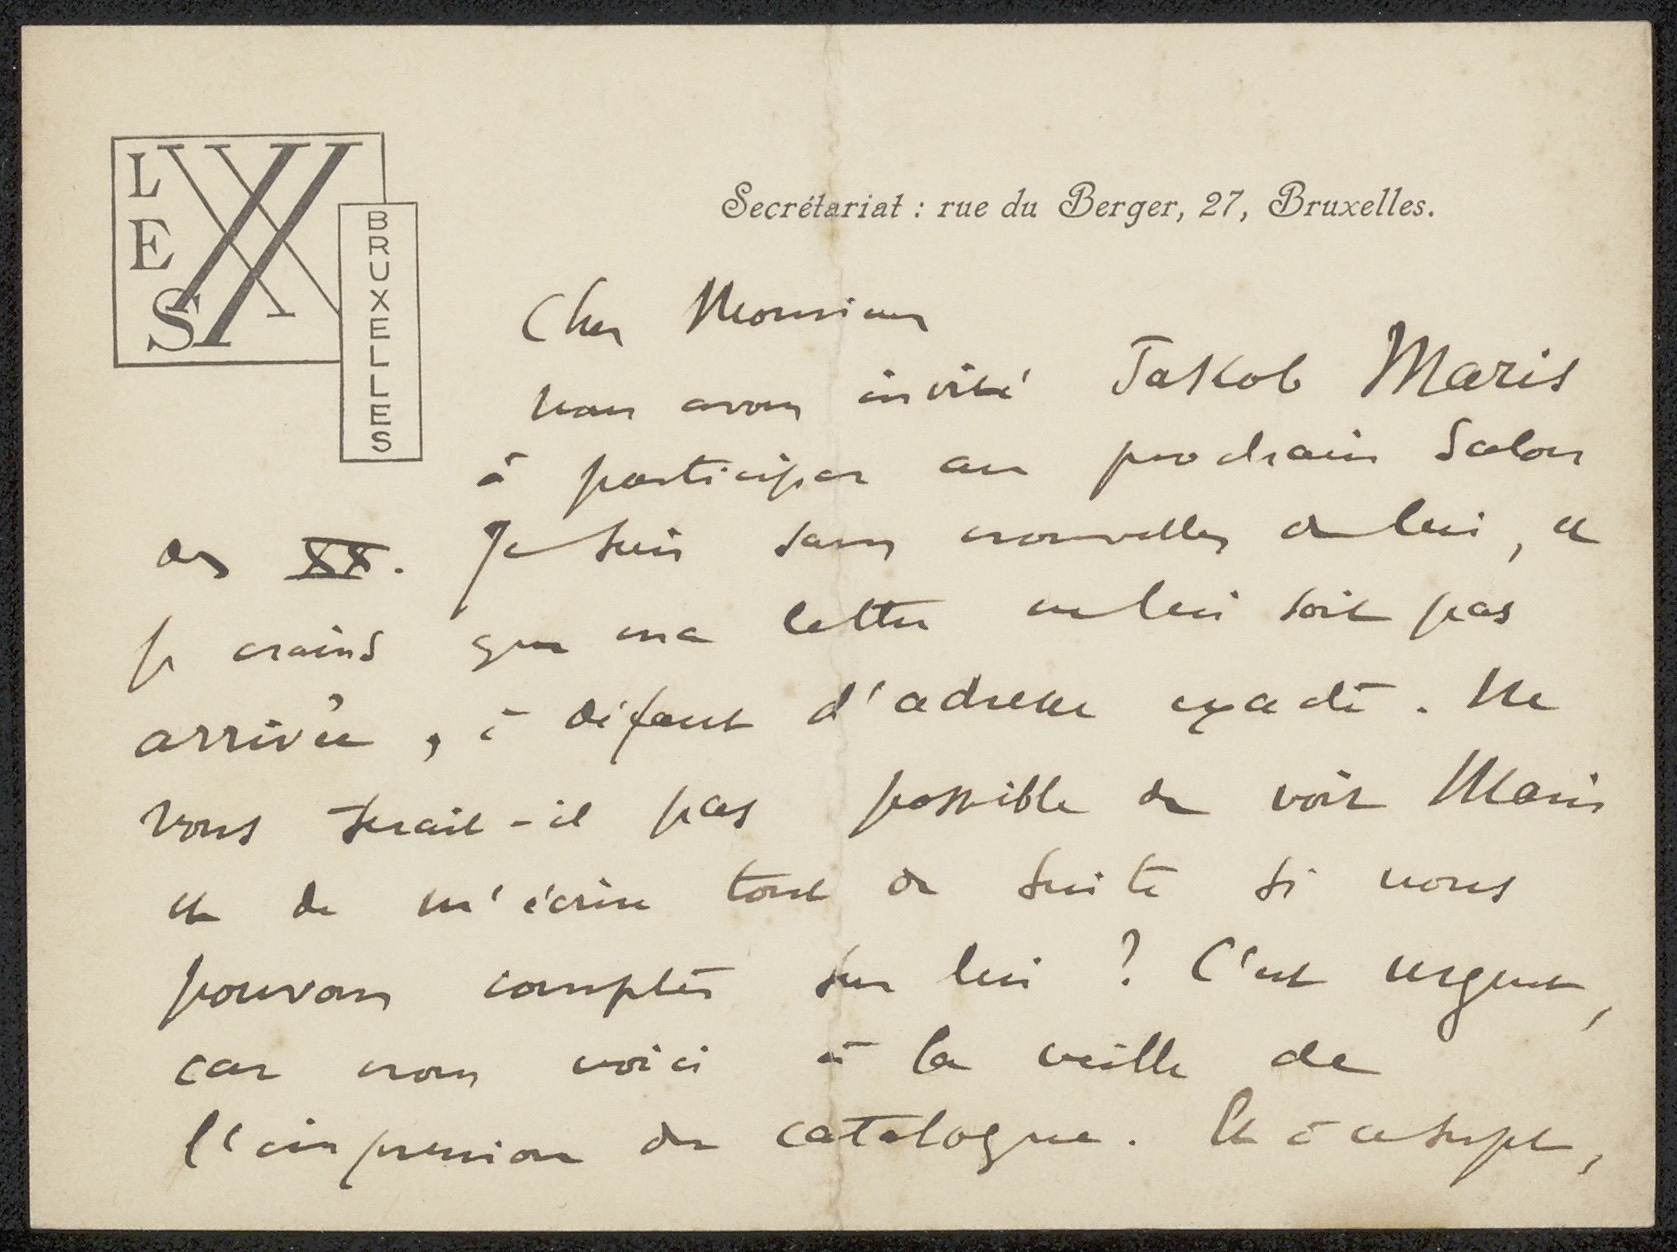 LES XX
BRUXELLES
Secrétariat : rue du Berger, 27, Bruxelles.
Cher Monsieur
nous avons invité Jakob Maris
à participer au prochain Salon
des XX. Je suis sans nouvelles de lui, et
je crains que ma lettre ne lui soit pas
arrivée, à défaut d'adresse exacte. Ne
vous serait-il pas possible de voir Maris
et de m'écrire tout de suite si nous
pouvons compter sur lui ? C'est urgent,
car nous voici à la veille de
l'impression du catalogue. Et à ce sujet,